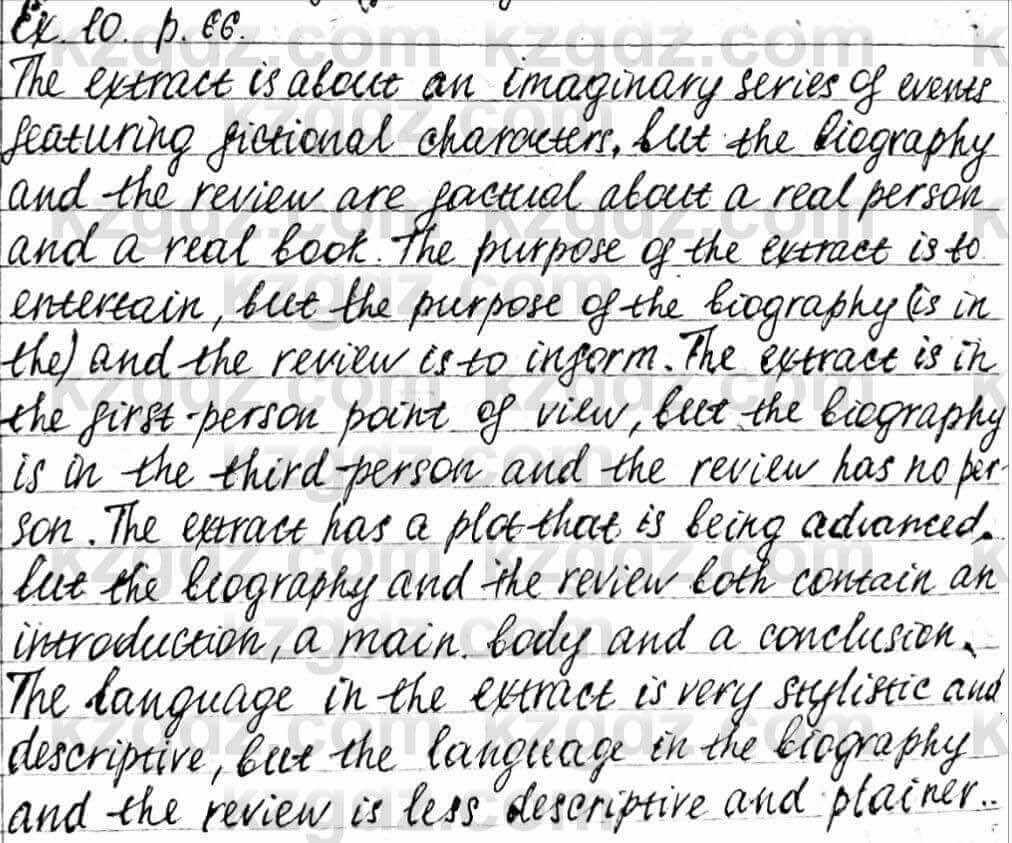 Ex. 10. p. 66.
The extract is about an imaginary series of events
featuring fictional characters, but the biography
and the review are factual about a real person
and a real book. The purpose of the extract is to
entertain, but the purpose of the biography (is in
the) and the review is to inform. The extract is in
the first-person point of view, but the biography
is in the third-person and the review has no per-
son. The extract has a plot that is being advanced,
but the biography and the review both contain an
introduction, a main body and a conclusion.
The language in the extract is very stylistic and
descriptive, but the language in the biography
and the review is less descriptive and plainer..